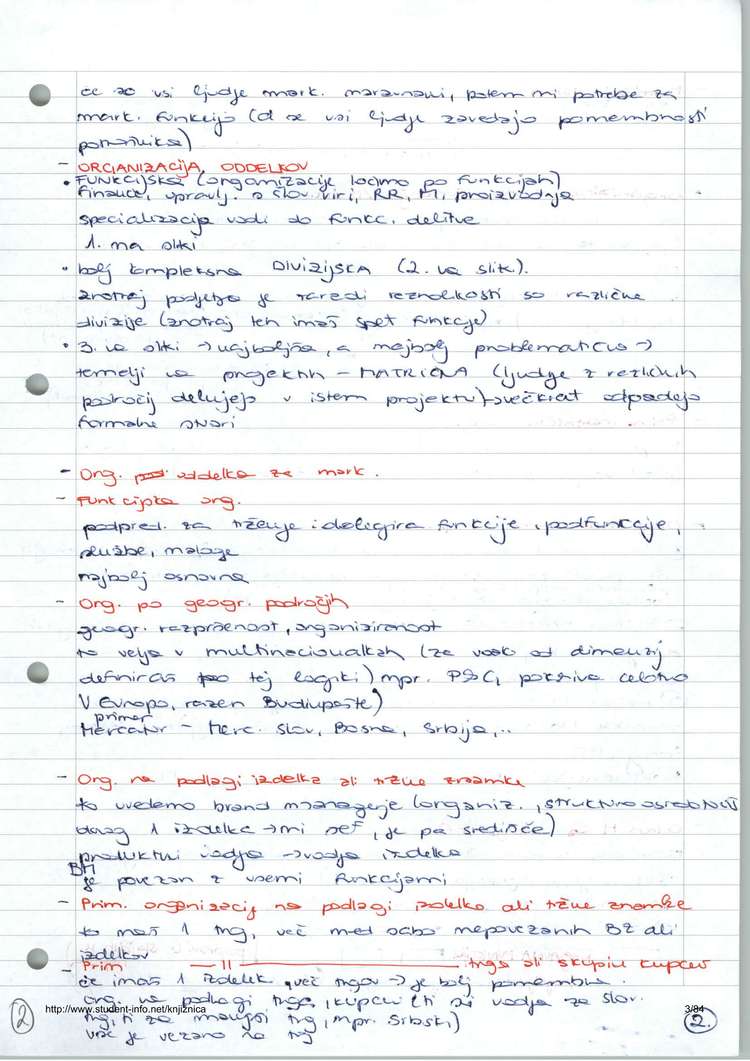 če so vsi ljudje mark. naravnani, potem ni potrebe za
mark. funkcijo (d se vsi ljudje zavedajo pomembnosti
potrošnikov)
- ORGANIZACIJA ODDELKOV
• FUNKCIJSKA (organizacije ločimo po funkcijah)
finance, upravlj. s člov. viri, RR, M, proizvodnja
specializacija vodi do funkc. delitve
1. na sliki
• bolj kompleksna DIVIZIJSKA (2. na sliki).
znotraj podjetja je zaradi raznolikosti so različne
divizije (znotraj teh imaš spet funkcije)
• 3. na sliki → najboljša, a najbolj problematična →
temelji na projektih - MATRIČNA (ljudje z različnih
področij delujejo v istem projektu) → večkrat odpadejo
formalne stvari
- Org. oddelka za mark.
- Funkcijska org.
podpred. za trženje: delegira funkcije, podfunkcije,
službe, naloge
najbolj osnovna
- Org. po geogr. področjih
geogr. razpršenost, organiziranost
to velja v multinacionalkah (za vsako od dimenzij
definiraš po tej logiki) npr. P&G, pokriva celotno
V Evropo, razen Budimpešte)
primer
Mercator - Merc. Slov, Bosna, Srbija,..
- Org. na podlagi izdelka ali tržne znamke
to uvedemo brand managerje (organiz., strukturo
1 izdelka → ni šef, je pa središče)
produktni vodja → vodja izdelka
BM
je povezan z vsemi funkcijami
- Prim. organizacije na podlagi izdelka ali tržne znamke
to maš 1 trg, več med sabo nepovezanih BZ ali
izdelkov
- Prim —— 11 —— trga ali skupin kupcev
če imaš 1 izdelek več trgov → je bolj pomembna
org. na podlagi trga, kupcev (ti si vodja za slov.
trg, ti za manjši trg, npr. Srbski)
vse je vezano na trg
2 http://www.student-info.net/knjiznica 3/84
2.